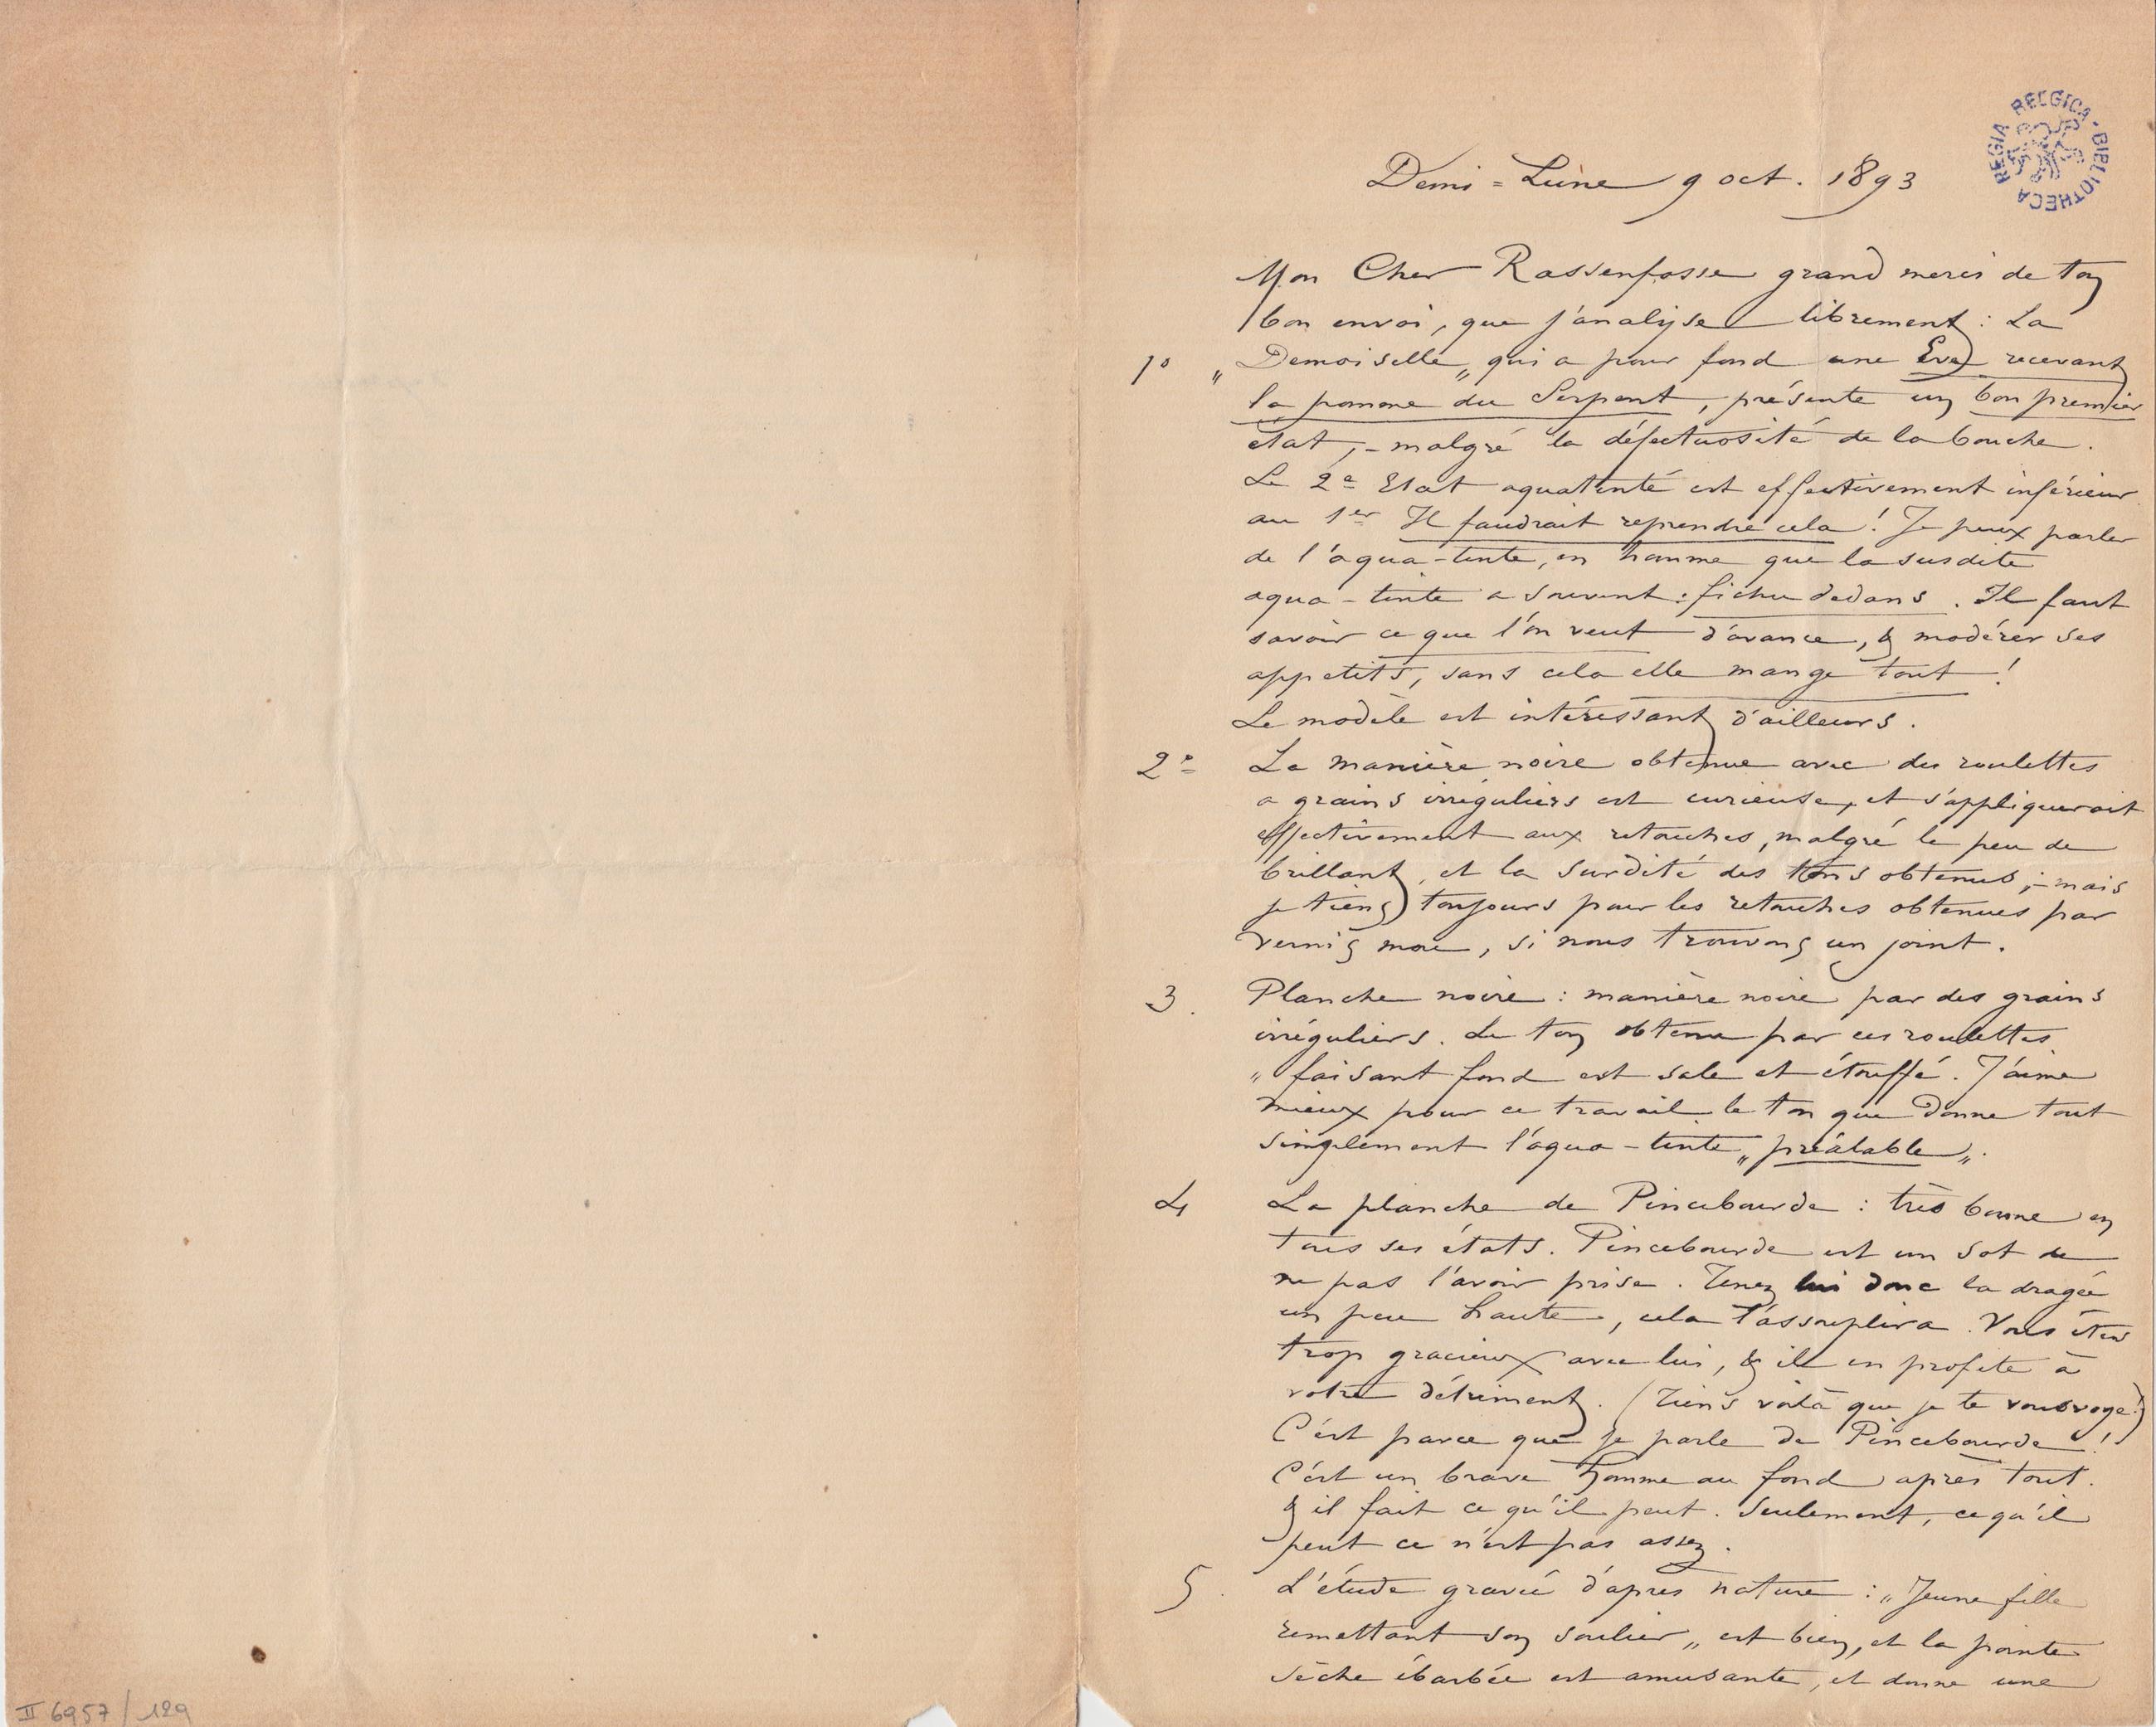 REGIA BELGICA · BIBLIOTHECA
Demi = Lune 9 oct. 1893
Mon Cher Rassenfosse grand merci de ton
bon envoi, que j'analyse librement : La
1° „ Demoiselle „ qui a pour fond une Eve recevant
la pomme du Serpent, présente un bon premier
état, – malgré la défectuosité de la bouche.
Le 2e Etat aquatinté est effectivement inférieur
au 1er Il faudrait reprendre cela ! Je peux parler
de l'aqua-tinte, en homme que la susdite
aqua-tinte a souvent : fichu dedans. Il faut
savoir ce que l'on veut d'avance, & modérer ses
appetits, sans cela elle mange tout !
Le modèle est intéressant d'ailleurs.
2° La manière noire obtenue avec des roulettes
a grains irréguliers est curieuse, et s'appliquerait
effectivement aux retouches, malgré le peu de
brillant, et la surdité des tons obtenus ; – mais
je tiens toujours pour les retouches obtenues par
vernis mou, si nous trouvons un joint.
3. Planche noire : manière noire par des grains
irréguliers. Le ton obtenu par ces roulettes
„ faisant fond est sale et étouffé. J'aime
mieux pour ce travail le ton que donne tout
simplement l'aqua-tinte „ préalable „.
4 La planche de Pincebourde : très bonne en
tous ses états. Pincebourde est un sot de
ne pas l'avoir prise. Tenez lui donc la dragée
un peu haute, cela l'assouplira. Vous êtes
trop gracieux avec lui, & il en profite à
votre détriment. (Tiens voilà que je te vousvoye !)
C'est parce que je parle de Pincebourde !
C'est un brave homme au fond après tout.
& il fait ce qu'il peut. Seulement, ce qu'il
peut ce n'est pas assez.
5. L'étude gravée d'apres nature : „ Jeune fille
remettant son soulier „ est bien, et la pointe
sèche ébarbée est amusante, et donne une
II 6957 / 129